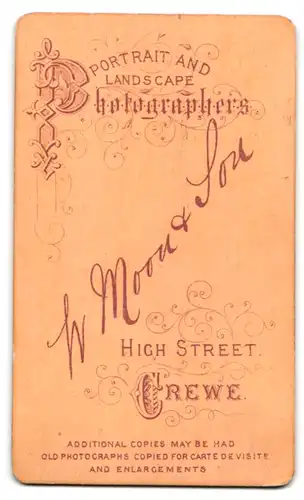 PORTRAIT AND
LANDSCAPE
Photographers
W Moon & Son
HIGH STREET.
CREWE.
ADDITIONAL COPIES MAY BE HAD
OLD PHOTOGRAPHS COPIED FOR CARTE DE VISITE
AND ENLARGEMENTS